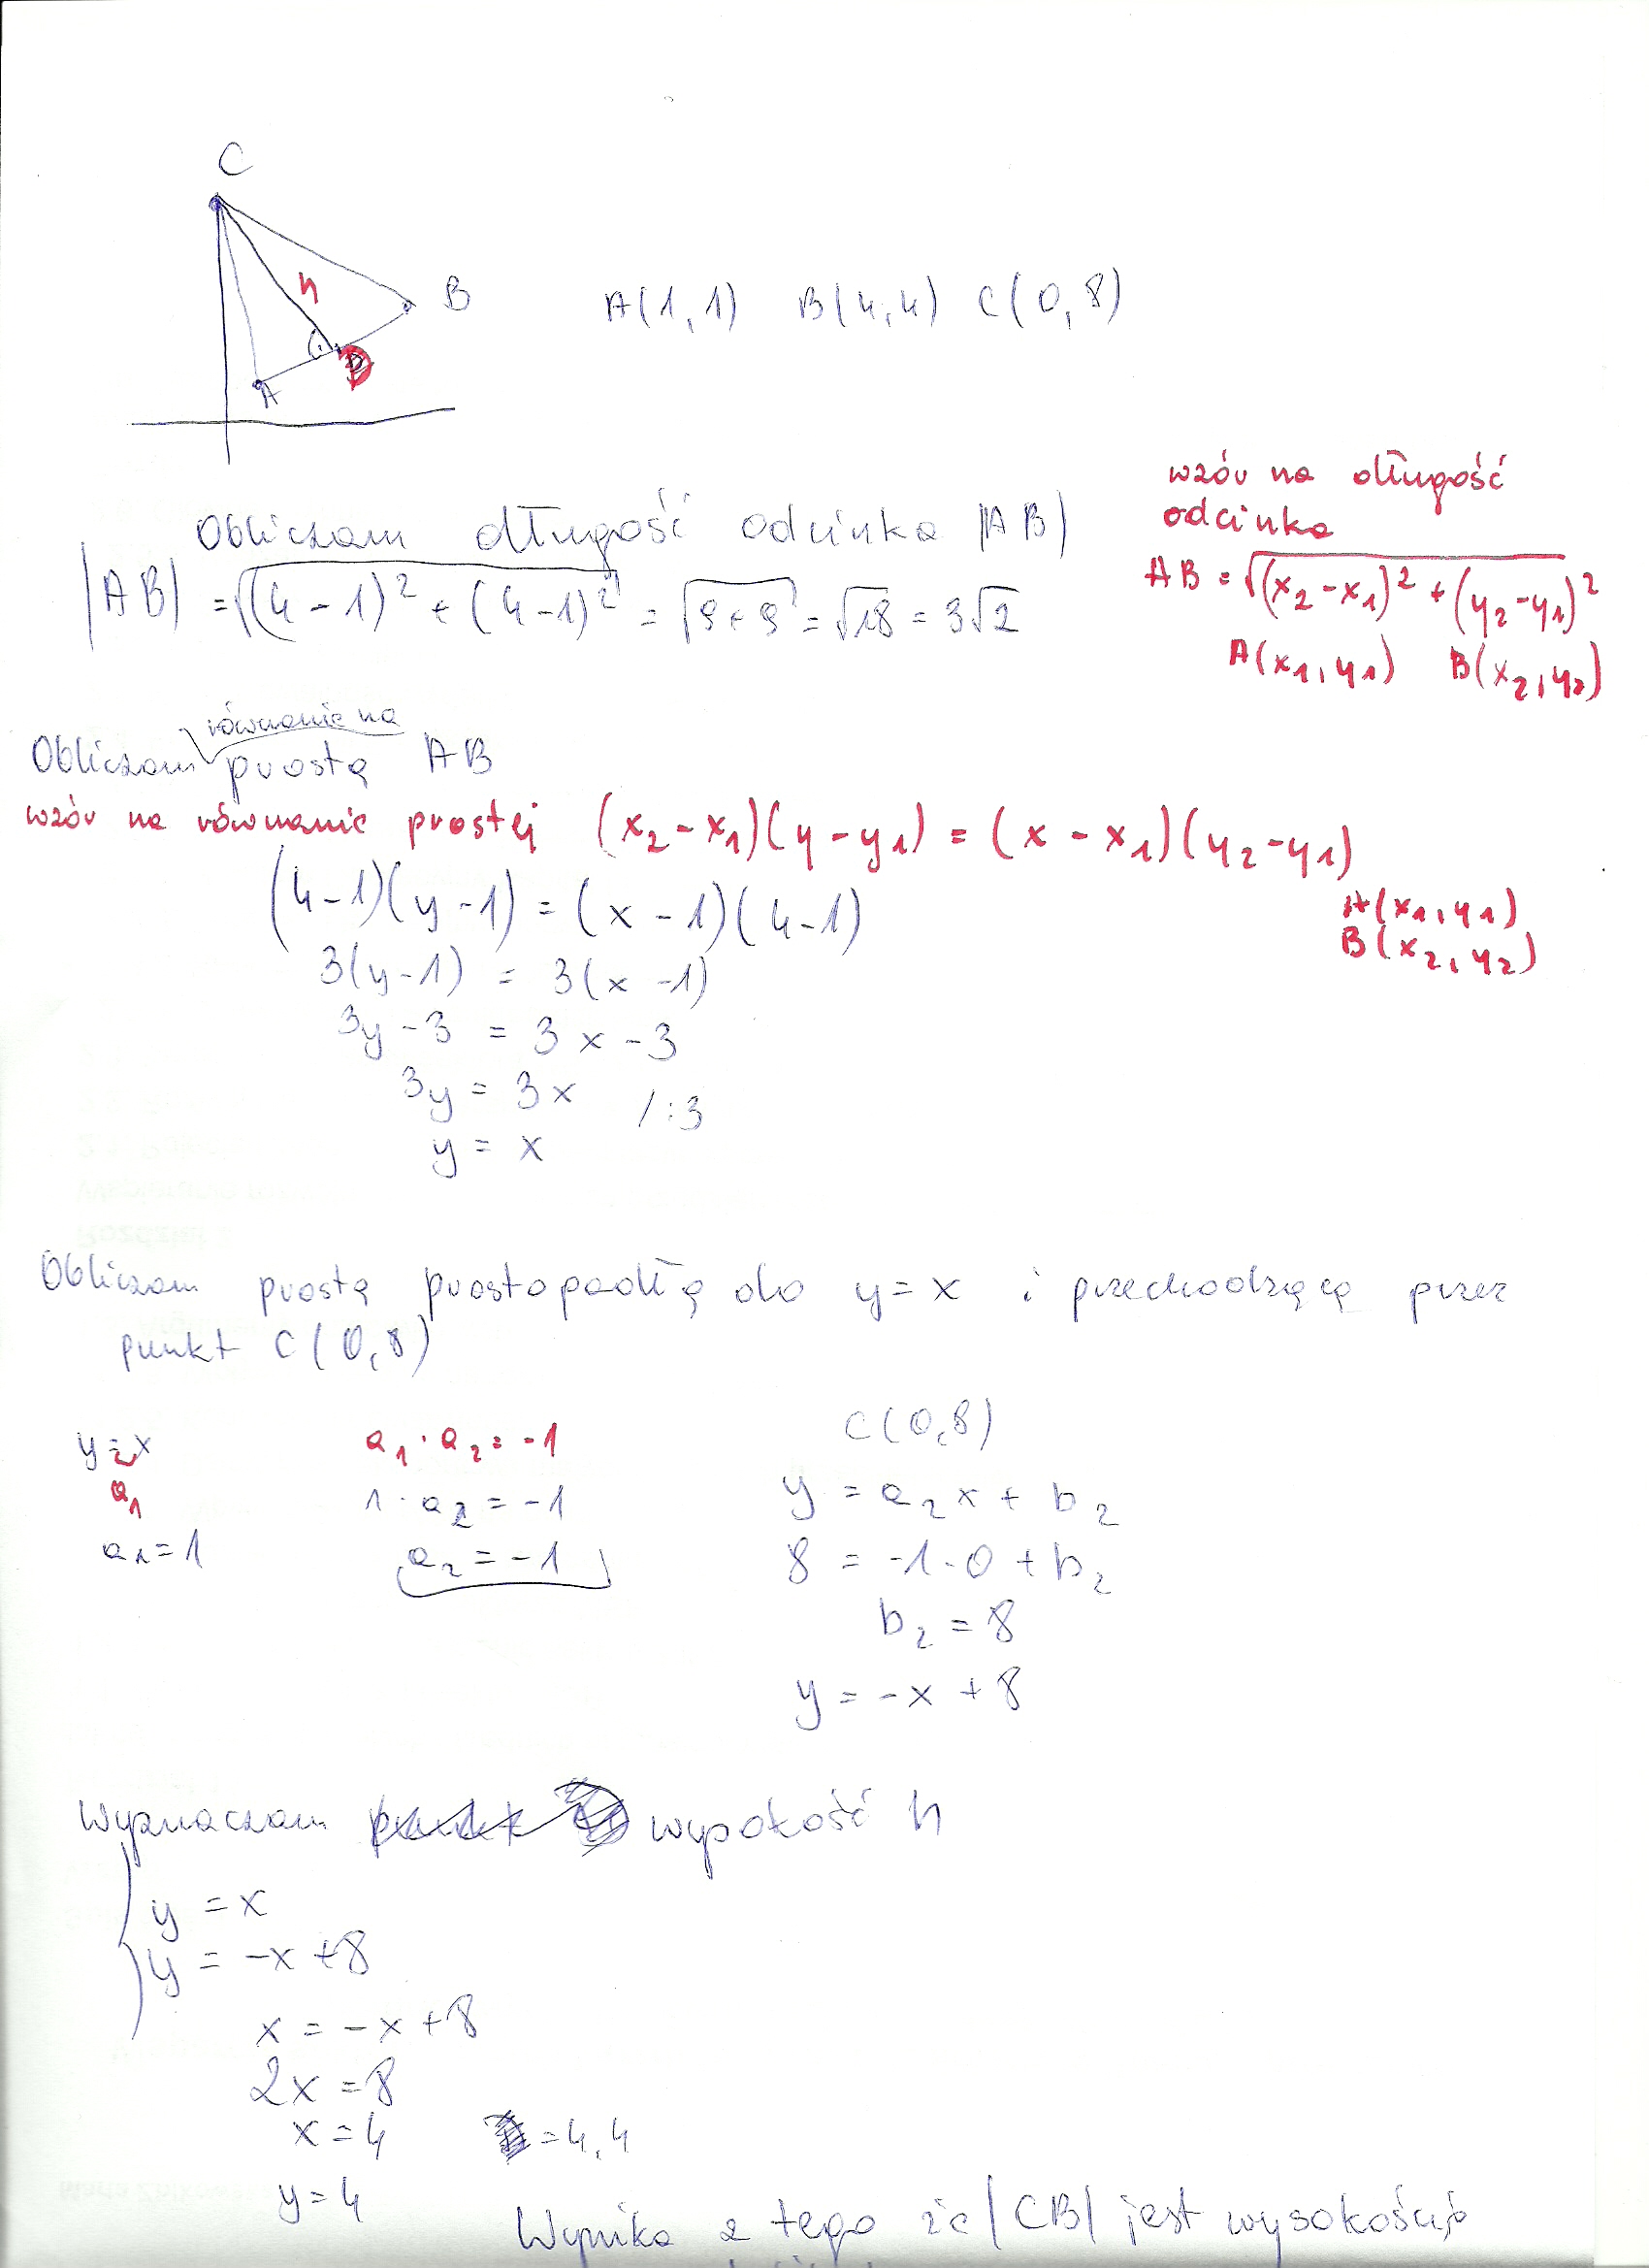 C
h
B
A(1,1) B(4,4) C(0,8)
D
A
wzór na długość
odcinka
AB = √(x₂-x₁)² + (y₂-y₁)²
A(x₁,y₁) B(x₂,y₂)
Obliczam długość odcinka |AB|
|AB| = √(4-1)² + (4-1)² = √9+9 = √18 = 3√2
równanie na
Obliczam prostą AB
wzór na równanie prostej (x₂-x₁)(y-y₁) = (x-x₁)(y₂-y₁)
A(x₁,y₁)
B(x₂,y₂)
(4-1)(y-1) = (x-1)(4-1)
3(y-1) = 3(x-1)
3y-3 = 3x-3
3y = 3x /:3
y = x
Obliczam prostą prostopadłą do y=x i przechodzącą przez
punkt C(0,8)
y=x
a₁
a₁=1
a₁·a₂=-1
1·a₂=-1
a₂=-1
C(0,8)
y = a₂x + b₂
8 = -1·0 + b₂
b₂ = 8
y = -x + 8
Wyznaczam wysokość h
y = x
y = -x+8
x = -x+8
2x = 8
x = 4 = 4,4
y = 4
Wynika z tego że |CB| jest wysokością